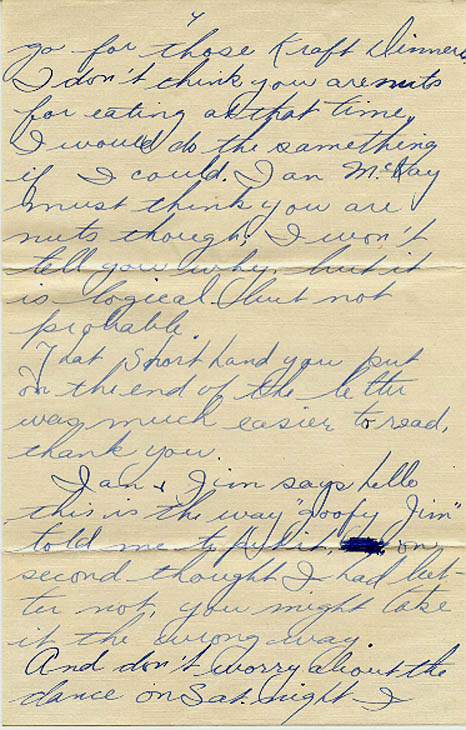 4
go for those Kraft Dinners
I don't think you are nuts
for eating at that time,
I would do the something
if I could. Ian McKay
must think you are
nuts though; I won't
tell you why, but it
is logical but not
probable.
That Short hand you put
on the end of the letter
was much easier to read,
thank you.
Ian & Jim says hello
this is the way "goofy Jim"
told me to put it, on
second thought I had bet-
ter not, you might take
it the wrong way.
And don't worry about the
dance on Sat. night I